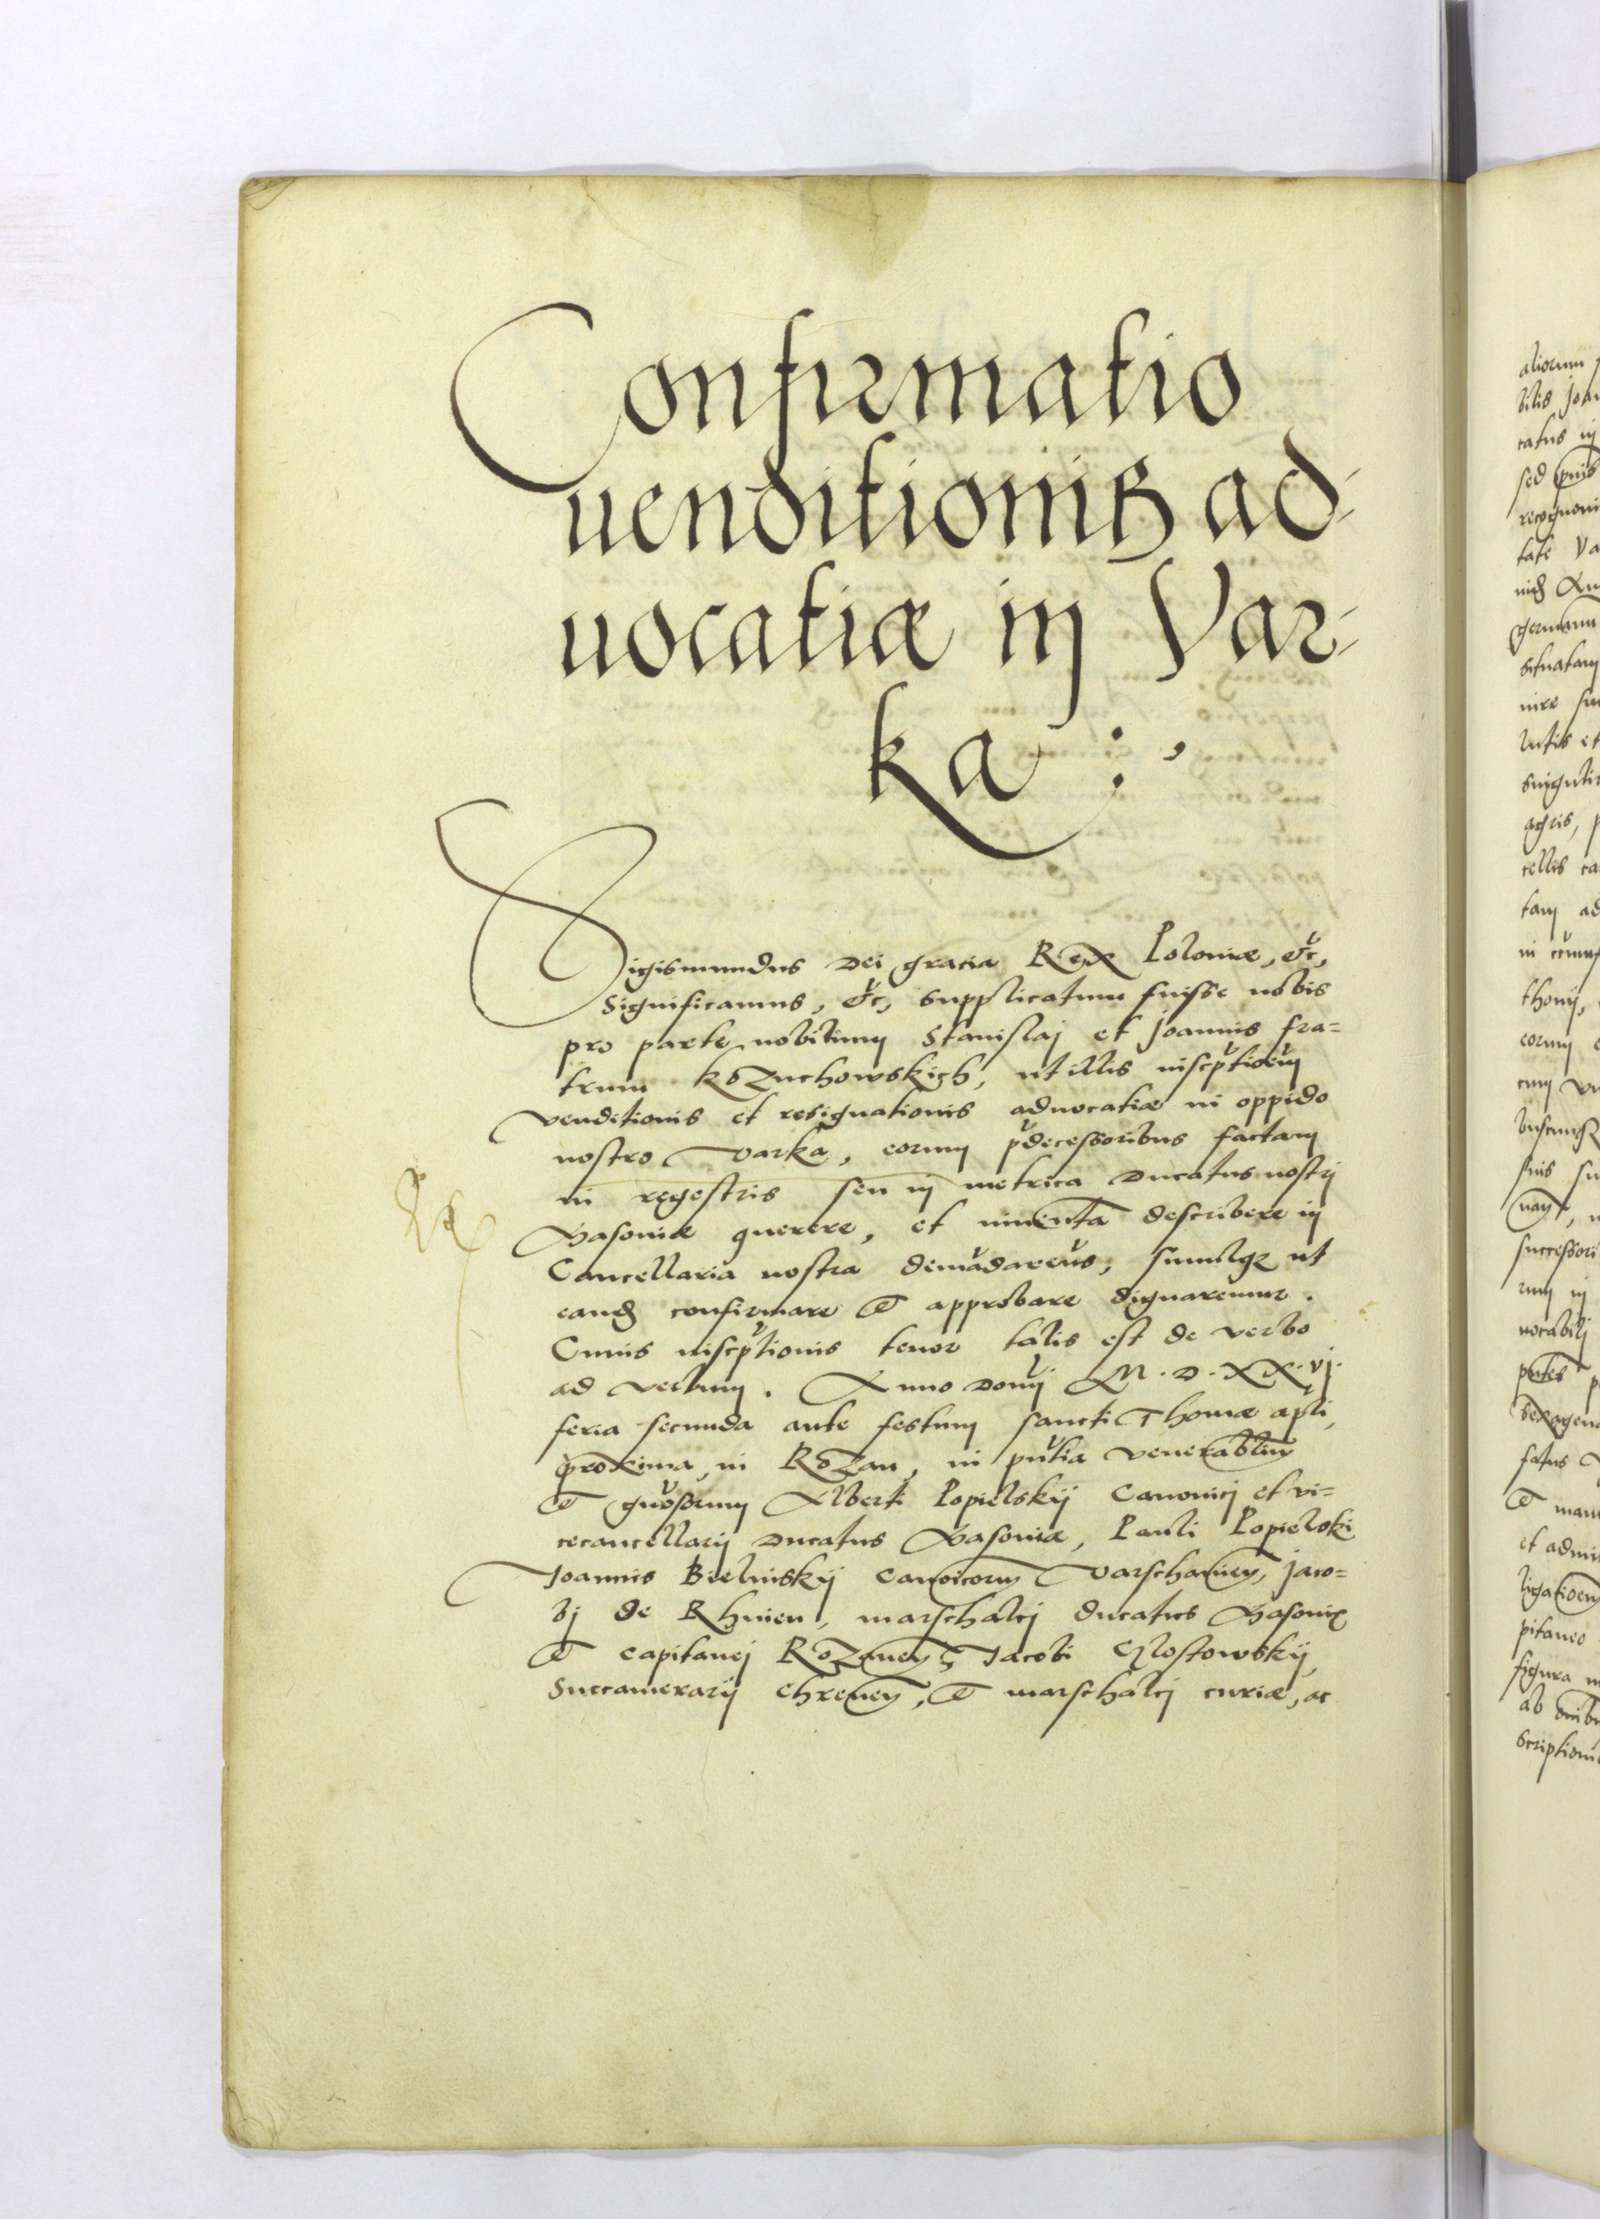 Confirmatio
uenditionis ad-
uocatiæ in Var-
ka :,
Sigismundus Dei gracia Rex Poloniæ, &c,
Significamus, &c, Supplicatum fuisse nobis
pro parte nobilium Stanislaj et Joannis fra=
trum Kozuchowskich, ut illis inscptioem
venditionis et resignationis aduocatiæ in oppido
nostro Varka, eorum pdecessoribus factam
in regestris seu in metrica Ducatus nostrj
Masoviæ querere, et inuenta describere in
Cancellaria nostra demādarems, simulqz ut
eand confirmare & approbare dignaremur.
Cuius inscptionis tenor talis est de verbo
ad verbum. Anno Domj M.D.XX.vj.
feria secunda ante festum sancti Thomæ apli,
proxima, in Rozan, in pntia venerabliu
& gnosorum Alberti Popielskij Canonicj et vi=
cecancellarij Ducatus Masoviæ, Pauli Popielski
Joannis Bielinskij canoicorum Varschavien, Jaco=
bj de Rhnien, marschalcj ducatus Masoviæ
& capitanej Rozanen, Jacobi Chlostowskij,
Succamerarij Chrenen, & marschalcj curiæ, ac
aliorum
bilis Joan
catus in
sed
recognoui
tate Va
germanu
situatam
nire su
lutis et
singulis
agris, p
cellis ca
tam ad
in
eorum
cum
suis su
successori
rum in
uocabilj
fatus
& man
et admi
ligatioem
pitaneo
figura
ab
scriptioni